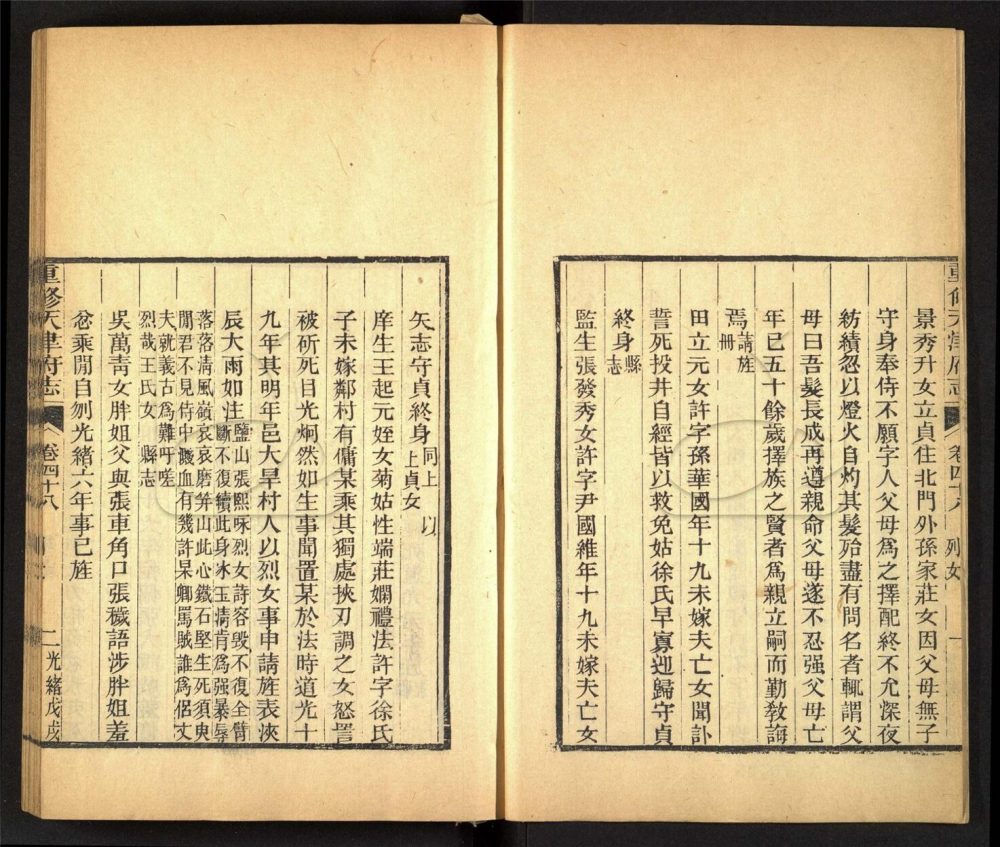 重修天津府志 卷四十八 列女 一
景秀升女立貞住北門外孫家莊女因父母無子
守身奉侍不願字人父母爲之擇配終不允深夜
紡績忽以燈火自灼其髮殆盡有問名者輒謂父
母曰吾髮長成再遵親命父母遂不忍强父母亡
年已五十餘歲擇族之賢者爲親立嗣而勤敎誨
焉請旌冊
田立元女許字孫華國年十九未嫁夫亡女聞訃
誓死投井自經皆以救免姑徐氏早寡迎歸守貞
終身縣志
監生張發秀女許字尹國維年十九未嫁夫亡女
矢志守貞終身同上 以上貞女
庠生王起元姪女菊姑性端莊嫻禮法許字徐氏
子未嫁鄰村有傭某乘其獨處挾刃調之女怒詈
被斫死目光炯然如生事聞置某於法時道光十
九年其明年邑大旱村人以烈女事申請旌表浹
辰大雨如注鹽山張熙咏烈女詩容毀不復全臂
斷不復續此身冰玉情肯爲强暴辱
落落淸風嶺哀哀磨笄山此心鐵石堅生死須臾
閒君不見侍中濺血有幾許杲卿罵賊誰爲侶丈
夫就義古爲難吁嗟
烈哉王氏女 縣志
吳萬靑女胖姐父與張車角口張穢語涉胖姐羞
忿乘閒自刎光緒六年事已旌
重修天津府志 卷四十八 二 光緒戊戌